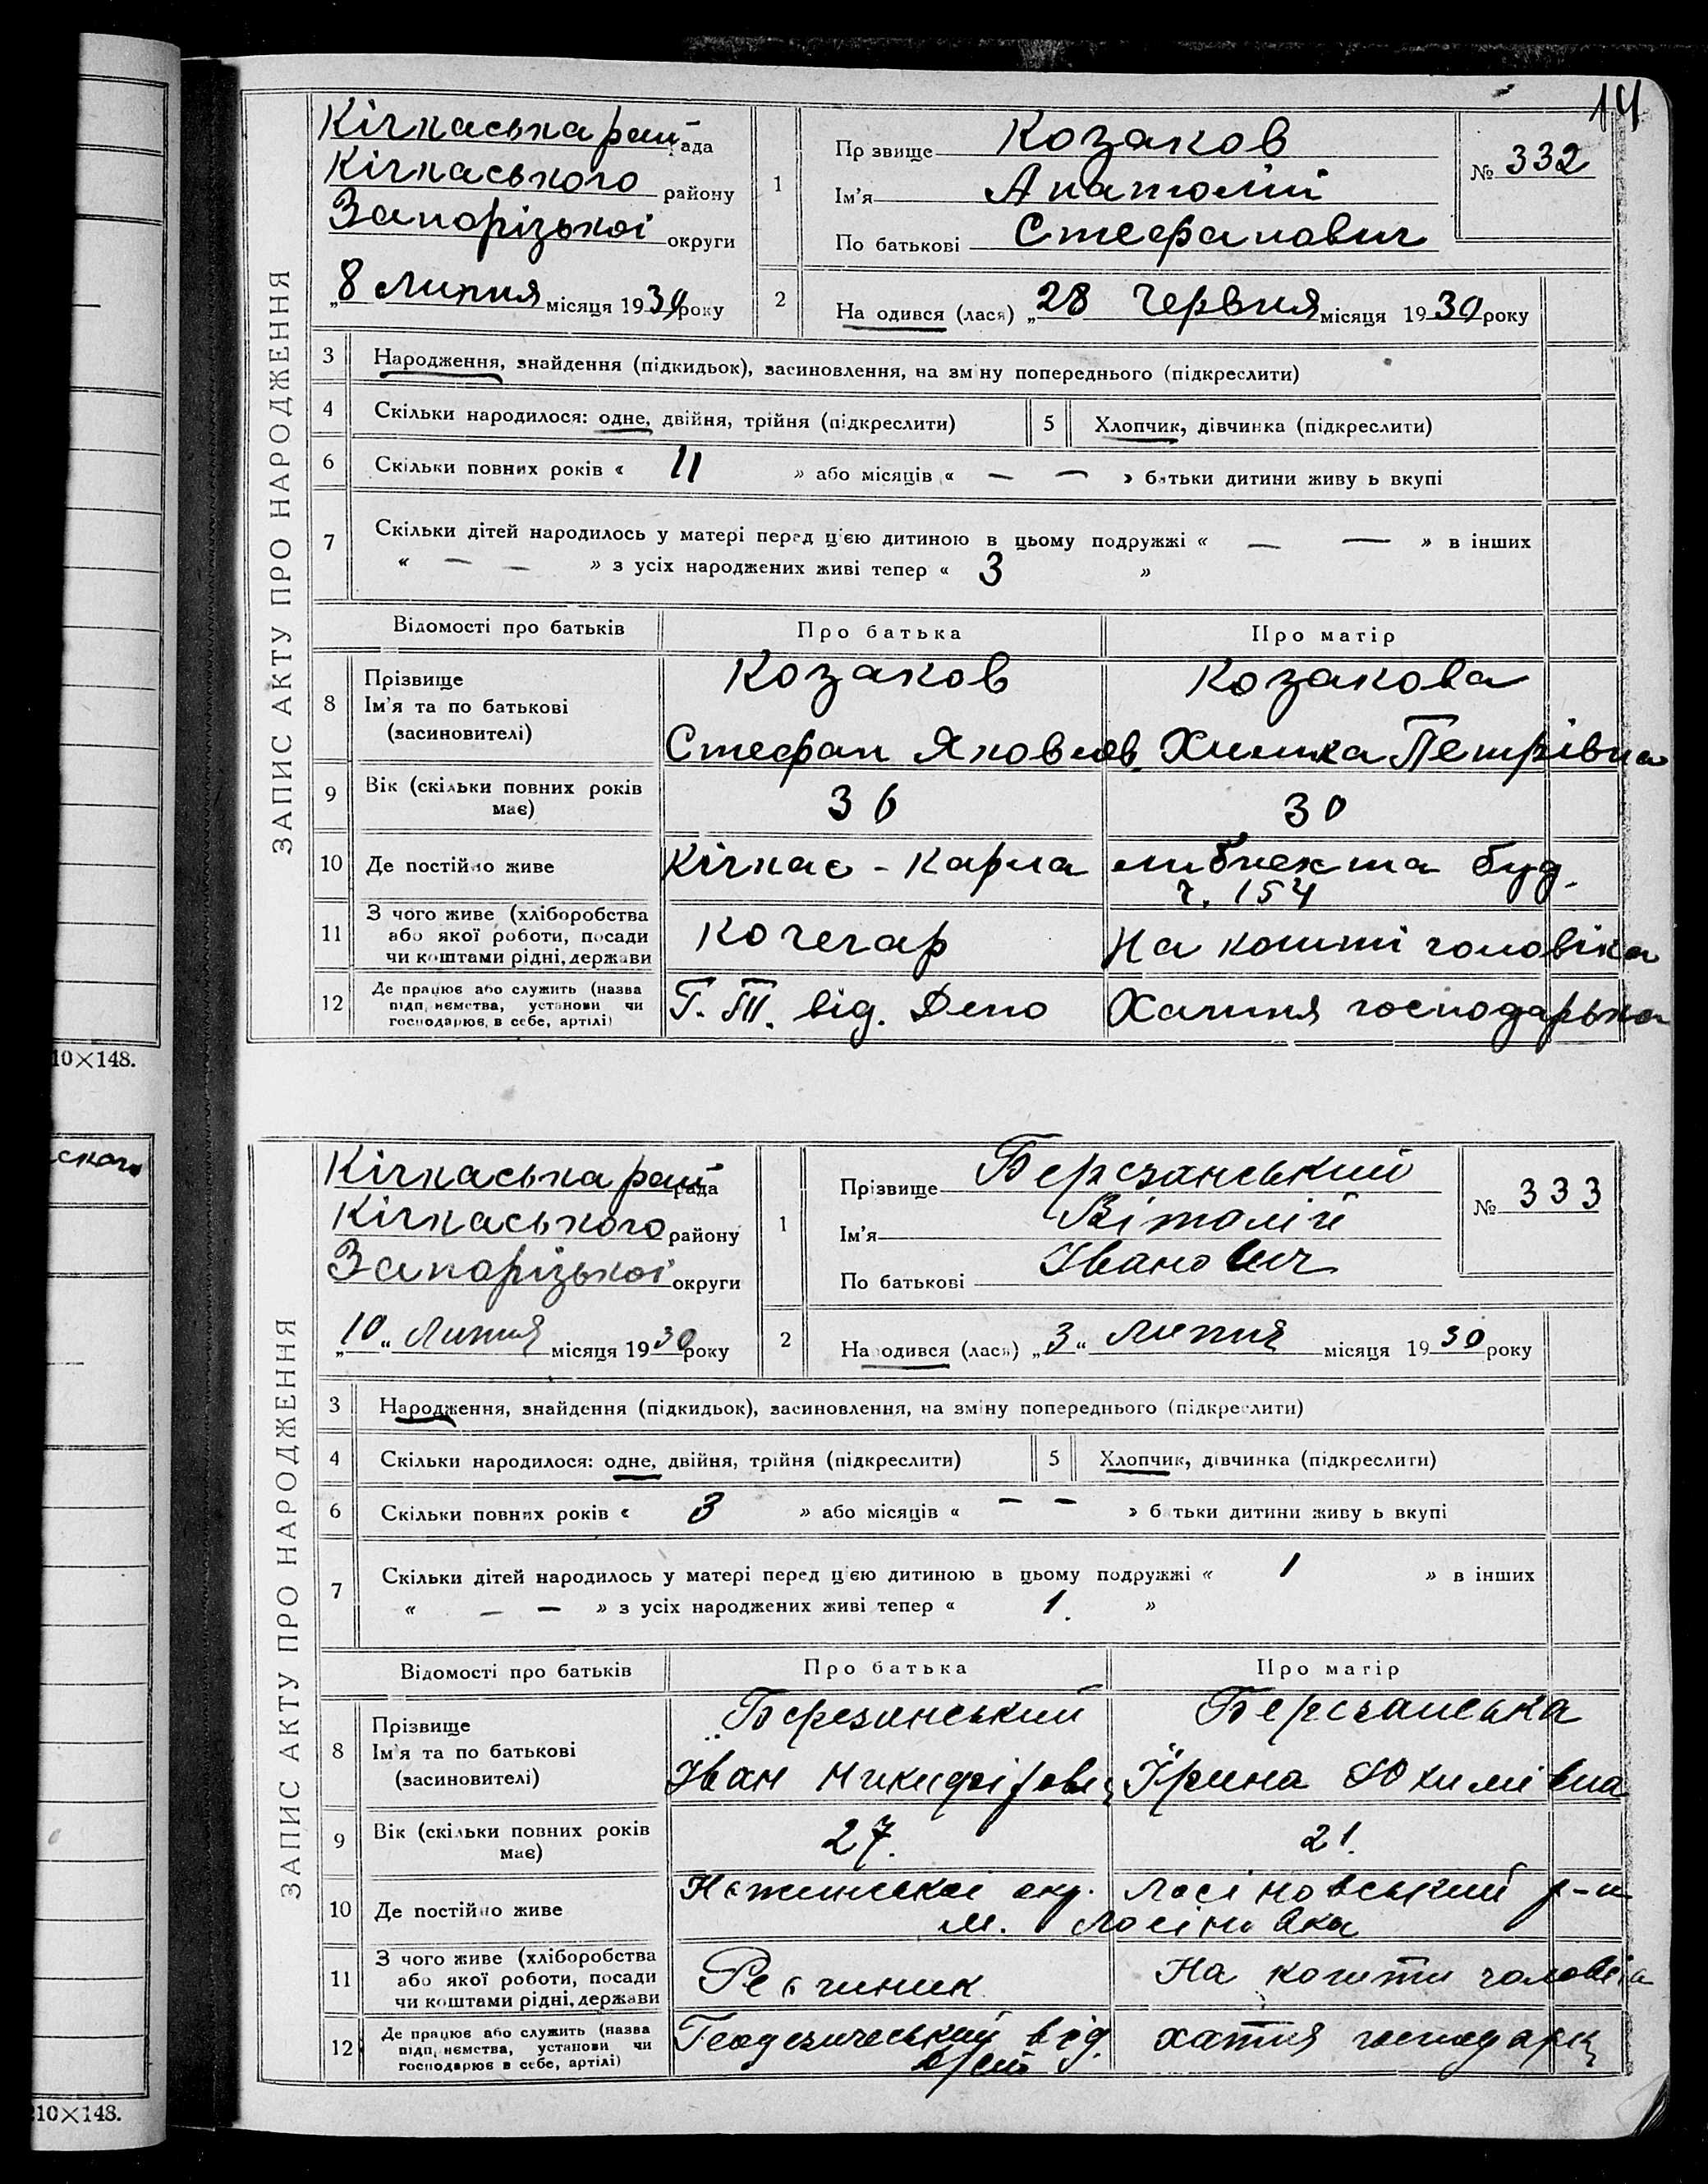 14
ЗАПИС АКТУ ПРО НАРОДЖЕННЯ
Кічкаська рай рада
Кічкаського району
Запорізької округи
„8 Липня місяця 1930 року
1
Прзвище Козаков
Ім'я Анатолій
По батькові Стефанович
№ 332
2
На одився (лася) „28 Червня місяця 1930 року
3 Народження, знайдення (підкидьок), засиновлення, на зміну попереднього (підкреслити)
4 Скільки народилося: одне, двійня, трійня (підкреслити) 5 Хлопчик, дівчинка (підкреслити)
6 Скільки повних років « 11 » або місяців « — — » батьки дитини живу ь вкупі
7 Скільки дітей народилось у матері перед цією дитиною в цьому подружжі « — — » в інших
« — — » з усіх народжених живі тепер « 3 »
Відомості про батьків Про батька Про матір
8 Прізвище Козаков Козакова
Ім'я та по батькові
(засиновителі) Стефан Яковлев. Химка Петрівна
9 Вік (скільки повних років має) 36 30
10 Де постійно живе Кічкас - Карла либкнехта буд.
ч. 154
11 З чого живе (хліборобства або якої роботи, посади чи коштами рідні, держави Кочегар На кошті чоловіка
12 Де працює або служить (назва підприємства, установи чи господарює в себе, артілі) від. Депо Хатня господарька
10×148.
ЗАПИС АКТУ ПРО НАРОДЖЕННЯ
Кічкаська рай рада
Кічкаського району
Запорізької округи
„10„ Липня місяця 1930 року
1
Прізвище Березанський
Ім'я Віталій
По батькові Іванович
№ 333
2
Народився (лася) „3„ Липня місяця 1930 року
3 Народження, знайдення (підкидьок), засиновлення, на зміну попереднього (підкреслити)
4 Скільки народилося: одне, двійня, трійня (підкреслити) 5 Хлопчик, дівчинка (підкреслити)
6 Скільки повних років « 3 » або місяців « — — » батьки дитини живу ь вкупі
7 Скільки дітей народилось у матері перед цією дитиною в цьому подружжі « 1 » в інших
« — — » з усіх народжених живі тепер « 1. »
Відомості про батьків Про батька Про матір
8 Прізвище Березанський Березанська
Ім'я та по батькові
(засиновителі) Іван Никифорович Ірина Юхимівна
9 Вік (скільки повних років має) 27. 21.
10 Де постійно живе Нежинської окр. Лосіновський р-н
м. Лосіновка
11 З чого живе (хліборобства або якої роботи, посади чи коштами рідні, держави На кошти чоловіка
12 Де працює або служить (назва підприємства, установи чи господарює в себе, артілі) Геодезический від. хатня господарк
210×148.